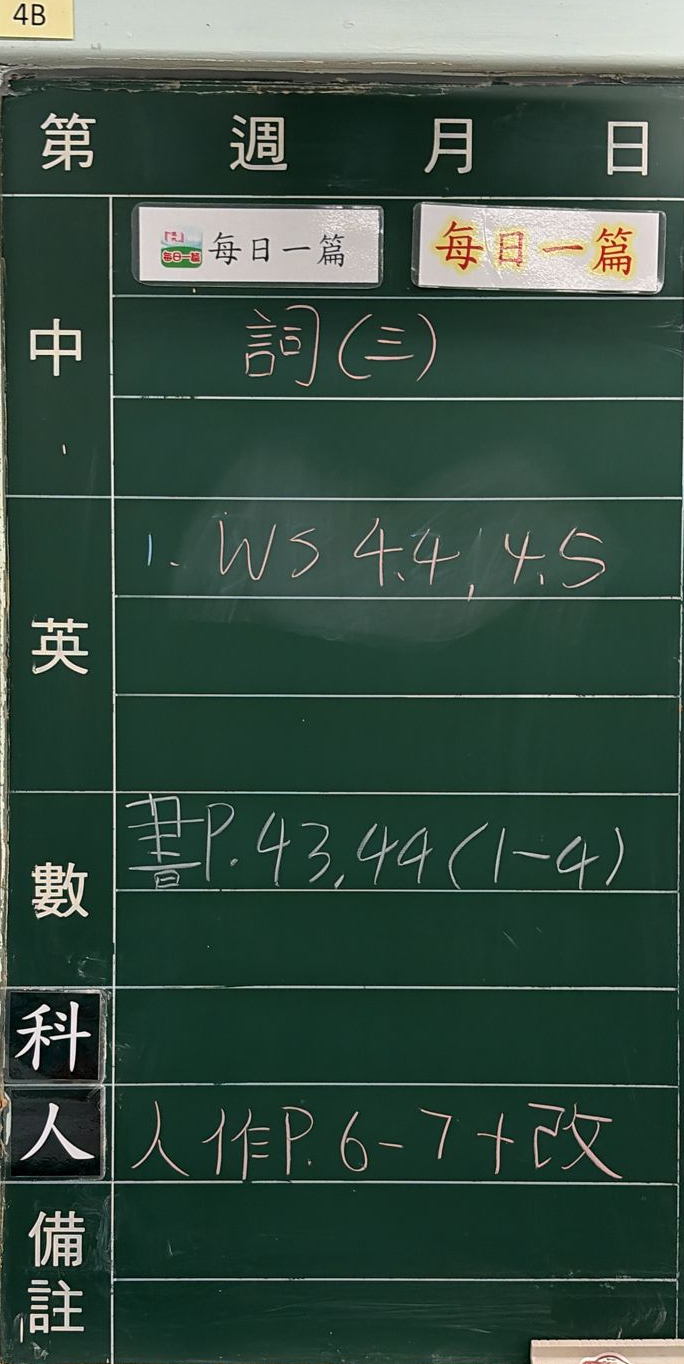 4B
第 週 月 日
每日一篇 每日一篇
中
詞(三)
英
1. WS 4.4, 4.5
數
書P.43,44(1-4)
科
人
人作P.6-7+改
備註